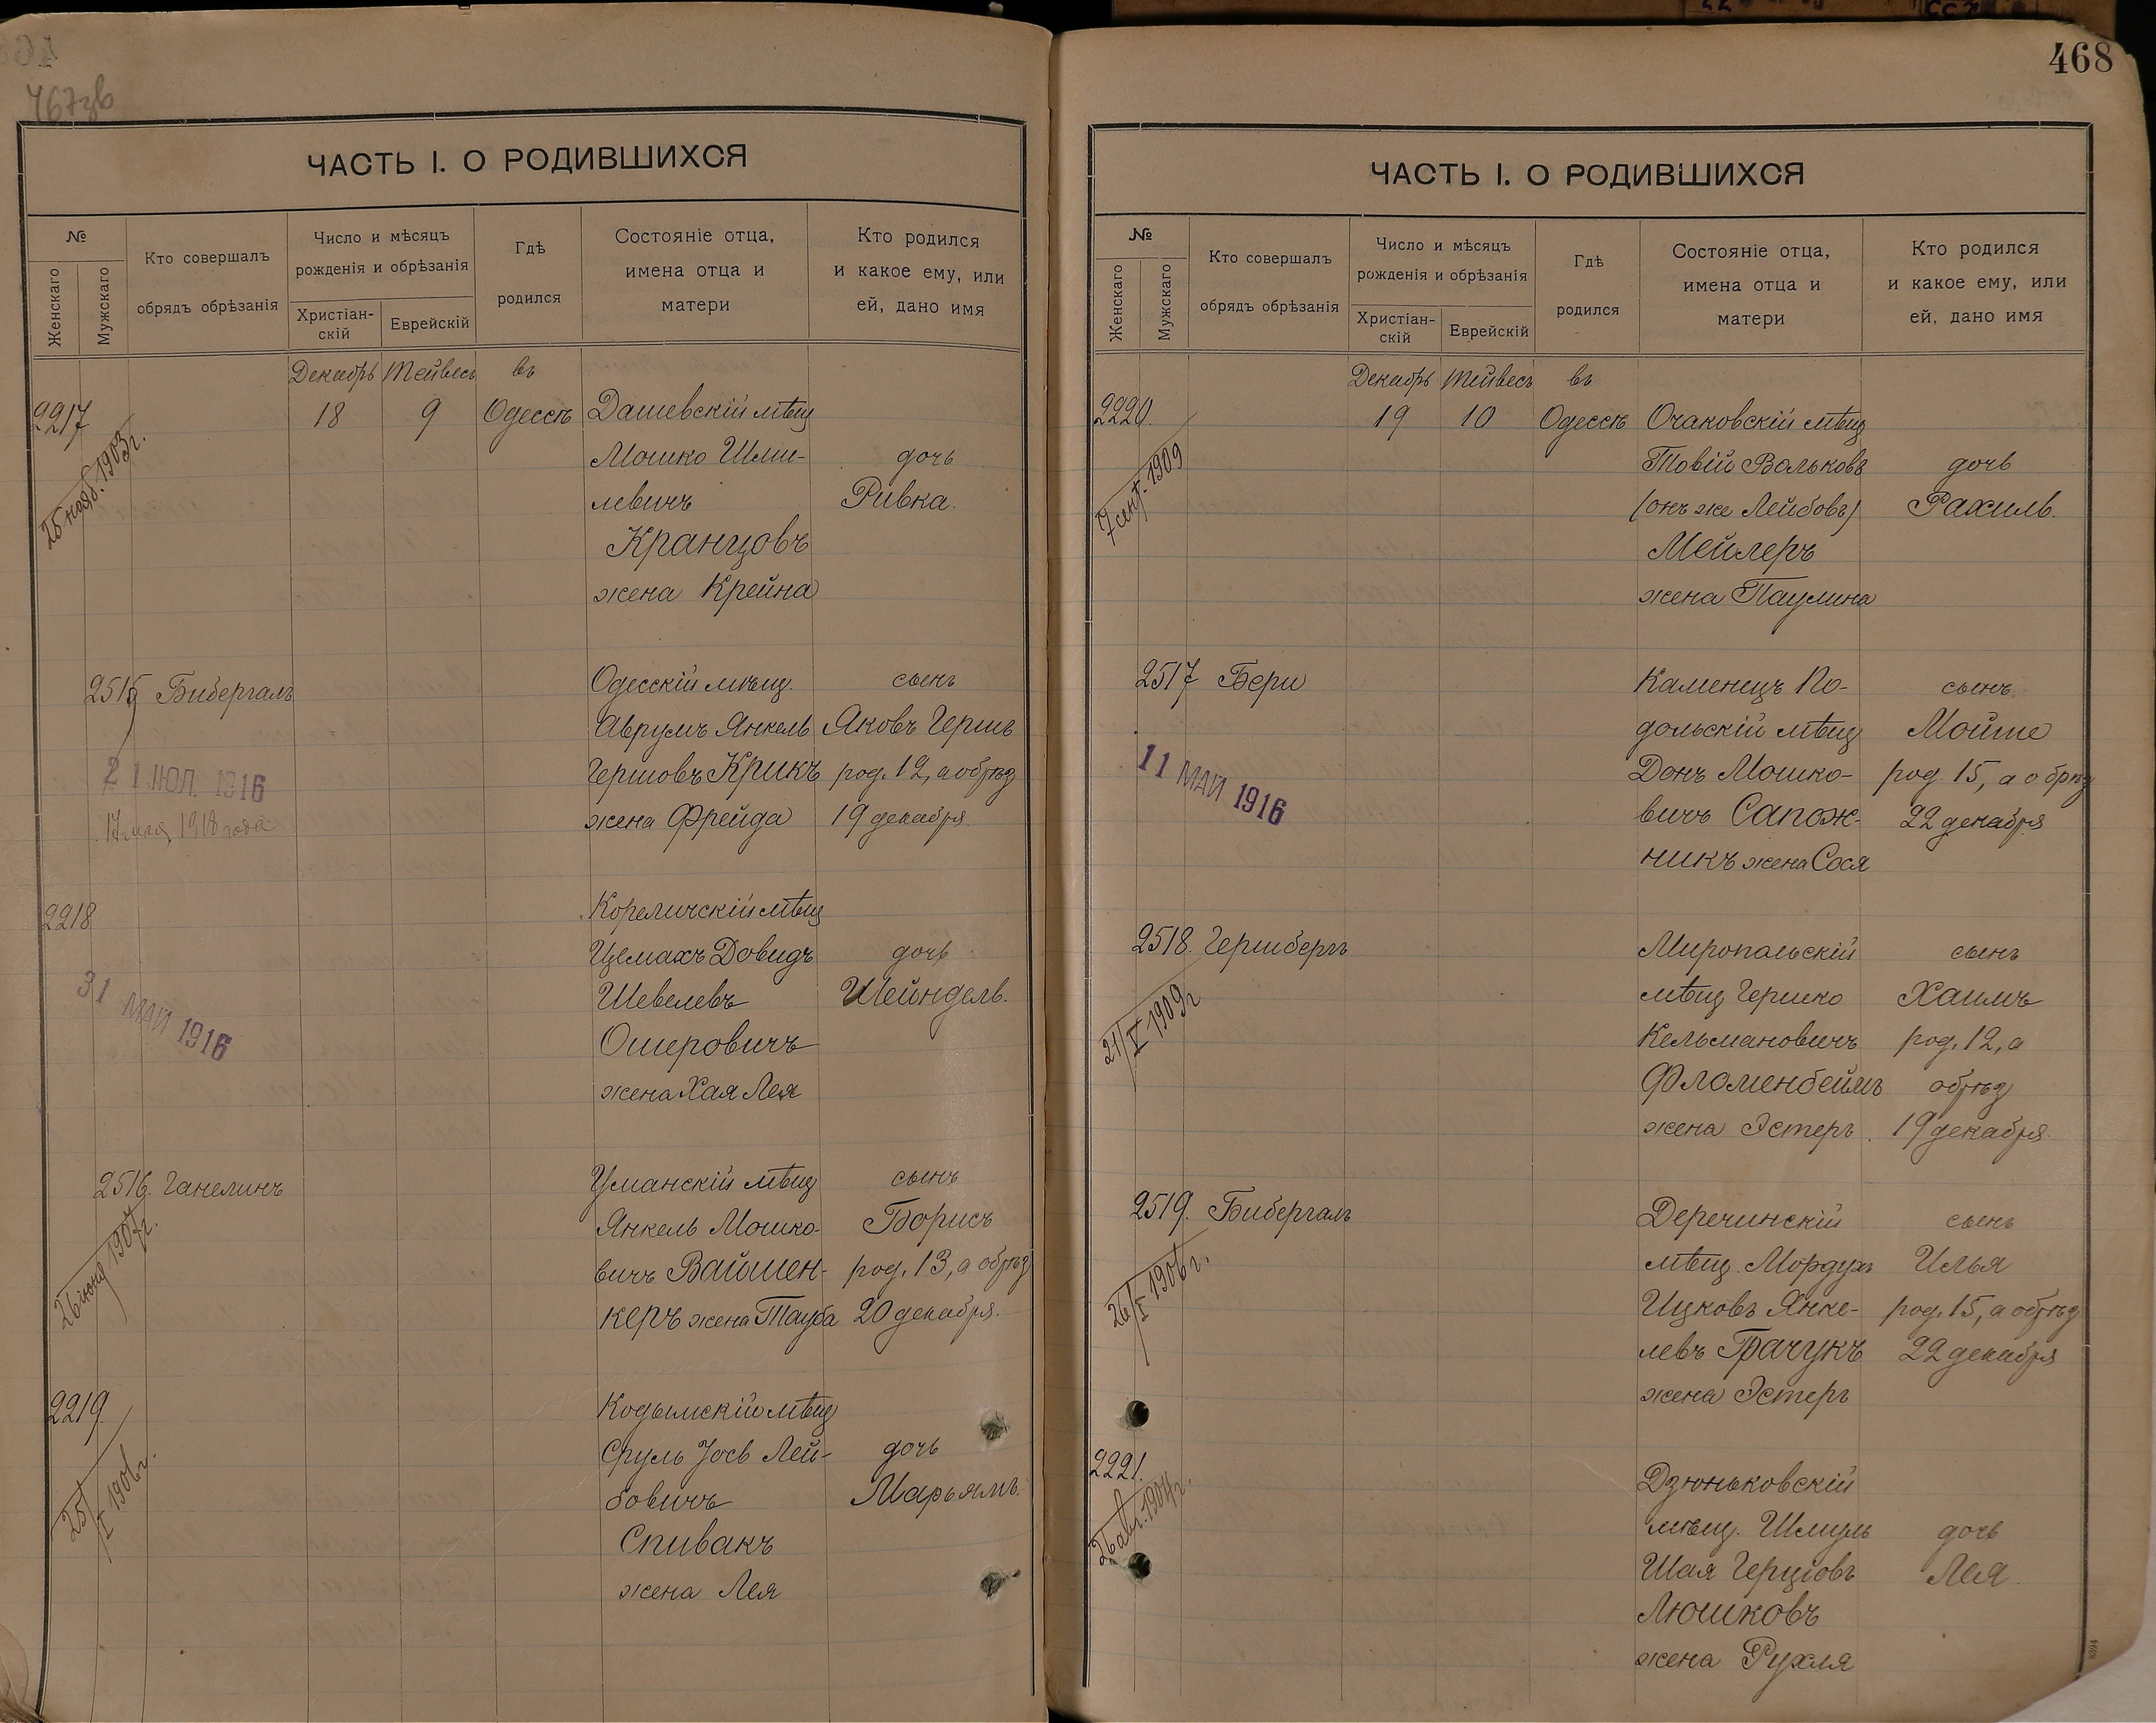 467зв
ЧАСТЬ I. О РОДИВШИХСЯ
№
Женскаго
Мужскаго
Кто совершалъ
обрядъ обрѣзанія
Число и мѣсяцъ
рожденія и обрѣзанія
Христіан-
скій
Еврейскій
Гдѣ
родился
Состояніе отца,
имена отца и
матери
Кто родился
и какое ему, или
ей, дано имя
Декабрь Тейвесъ въ
2217 18 9 Одессѣ Дашевскій мѣщ
25 нояб. 1903 г.
Мошко Шми- дочь
левичъ Ривка.
Кранцовъ
жена Крейна
2515 Бибергалъ Одесскій мѣщ. сынъ
Аврумъ Янкель Яковъ Гершъ
Гершовъ Крикъ род. 12, а обрѣз
21 ІЮЛ. 1916
жена Фрейда 19 декабря.
17 мая 1918 года
2218 Кореличскій мѣщ
Цемахъ Довидъ дочь
Шевелевъ Шейндель.
31 МАЙ 1916
Ошеровичъ
жена Хая Лея
2516. Ганелинъ Уманскій мѣщ сынъ
26 іюня 1907 г.
Янкель Мошко- Борисъ
вичъ Вайшен- род. 13, а обрѣз
керъ жена Тауба 20 декабря.
2219. Кодымскій мѣщ
25/I 1906 г.
Сруль Іось Лей- дочь
бовичъ Марьямъ.
Спивакъ
жена Лея
468
ЧАСТЬ I. О РОДИВШИХСЯ
№
Женскаго
Мужскаго
Кто совершалъ
обрядъ обрѣзанія
Число и мѣсяцъ
рожденія и обрѣзанія
Христіан-
скій
Еврейскій
Гдѣ
родился
Состояніе отца,
имена отца и
матери
Кто родился
и какое ему, или
ей, дано имя
Декабрь Тейвесъ въ
2220. 19 10 Одессѣ Очаковскій мѣщ
7 сент. 1909
Товій Вольковъ дочь
(онъ же Лейбовъ) Рахиль.
Мейлеръ
жена Паулина
2517 Бери Каменецъ По- сынъ
дольскій мѣщ Мойше
11 МАЙ 1916
Донъ Мошко- род. 15, а обрѣз
вичъ Сапож- 22 декабря
никъ жена Сося
2518. Гершбергъ Миропольскій сынъ
мѣщ Гершко Хаимъ
21/V 1909 г
Кельмановичъ род. 12, а
Фломенбеймъ обрѣз
жена Эстеръ. 19 декабря.
2519. Бибергалъ Деречинскій сынъ
26/I 1906 г.
мѣщ. Мордухъ Илья
Ицковъ Янке- род. 15, а обрѣз
левъ Грачукъ 22 декабря
жена Эстеръ
2221. Дзюньковскій
26 авг. 1904 г.
мѣщ. Шмуль дочь
Шая Герцовъ Лея.
Люшковъ
жена Рухля